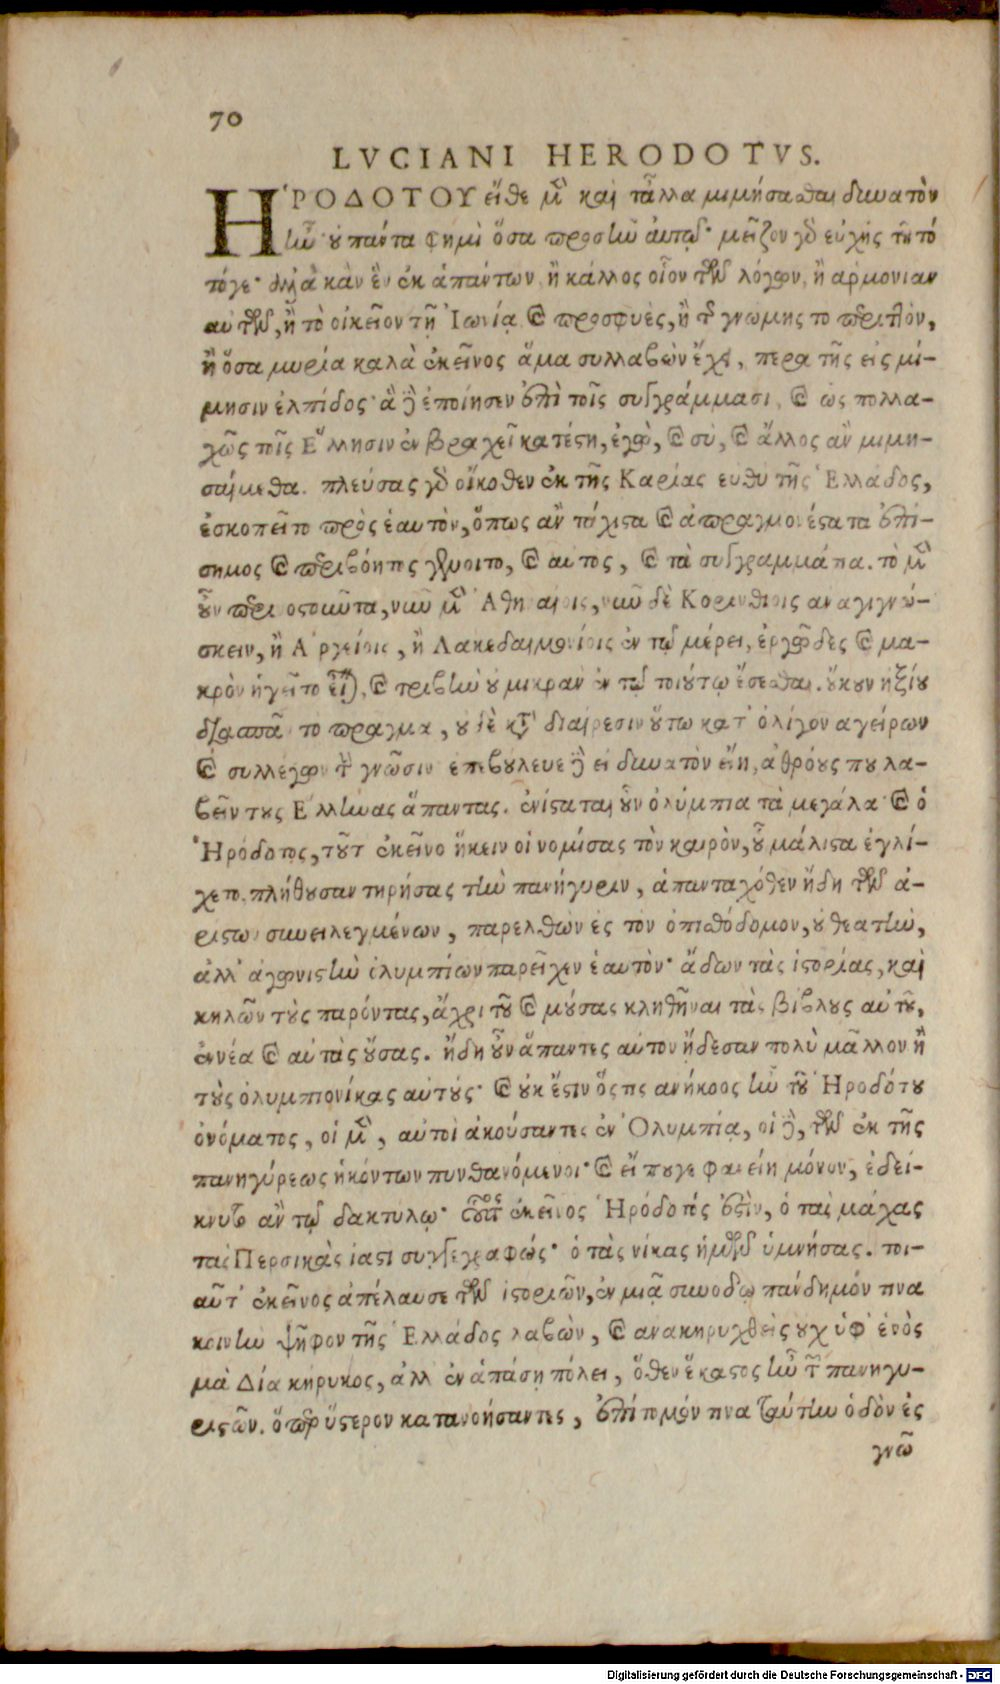 70
LVCIANI HERODOTVS.
ἩΡΟΔΟΤΟΥ εἴθε μὲν καὶ τἆλλα μιμήσασθαι δυνατὸν
ἦν· οὐ πάντα φημὶ ὅσα προσῆν αὐτῷ· μεῖζον γὰρ εὐχῆς τοῦτό
τόγε· ἀλλὰ κἂν ἓν ἐκ ἁπάντων, ἢ κάλλος οἷον τῶν λόγων, ἢ ἁρμονίαν
αὐτῶν, ἢ τὸ οἰκεῖον τῇ Ἰωνίᾳ καὶ προσφυὲς, ἢ τῆς γνώμης το περιττὸν,
ἢ ὅσα μυρία καλὰ ἐκεῖνος ἅμα συλλαβὼν ἔχει, περα τῆς εἰς μί-
μησιν ἐλπίδος· ἃ δὲ ἐποίησεν ἐπὶ τοῖς συγγράμμασι, καὶ ὡς πολλα-
χῶς τοῖς Ἕλλησιν ἐν βραχεῖ κατέστη, ἐγὼ, καὶ σὺ, καὶ ἄλλος ἂν μιμη-
σαίμεθα. πλεύσας γὰρ οἴκοθεν ἐκ τῆς Καρίας εὐθὺ τῆς Ἑλλάδος,
ἐσκοπεῖτο πρὸς ἑαυτὸν, ὅπως ἂν τάχιστα καὶ ἀπραγμονέστατα ἐπί-
σημος καὶ περιβόητος γένοιτο, καὶ αὐτος, καὶ τὰ συγγραμμάτια. τὸ μὲν
οὖν περιοστοῦντα, νῦν μὲν Ἀθηναίοις, νῦν δὲ Κορινθίοις αναγιγνώ-
σκειν, ἢ Ἀργείοις, ἢ Λακεδαιμονίοις ἐν τῷ μέρει, ἐργῶδες καὶ μα-
κρὸν ἡγεῖτο εἶναι, καὶ τριβὴν οὐ μικρὰν ἐν τῷ τοιούτῳ ἔσεσθαι. οὔκουν ἠξίου
διασπᾶν το πραγμα, οὐδὲ κατὰ διαίρεσιν οὕτω κατ' ὀλίγον αγείρων
καὶ συλλέγων τὴν γνῶσιν· ἐπεβούλευε δὲ εἰ δυνατὸν εἴη, ἀθρόους που λα-
βεῖν τους Ἕλληνας ἅπαντας. ἐνίσταται οὖν ὀλύμπια τὰ μεγάλα· καὶ ὁ
Ἡρόδοτος, τοῦτ' ἐκεῖνο ἥκειν οἱ νομίσας τὸν καιρὸν, οὗ μάλιστα ἐγλί-
χετο. πλήθουσαν τηρήσας τὴν πανήγυριν, ἁπανταχόθεν ἤδη τῶν ἀ-
ρίστων συνειλεγμένων, παρελθὼν ἐς τον ὀπισθόδομον, οὐ θεατὴν,
ἀλλ' ἀγωνιστὴν ὀλυμπίων παρεῖχεν ἑαυτὸν· ᾄδων τὰς ἱστορίας, καὶ
κηλῶν τοὺς παρόντας, ἄχρι τοῦ καὶ μούσας κληθῆναι τὰς βίβλους αὐτοῦ,
ἐννέα καὶ αὐτὰς οὔσας. ἤδη οὖν ἅπαντες αὐτον ᾔδεσαν πολὺ μᾶλλον ἢ
τοὺς ὀλυμπιονίκας αὐτούς· καὶ οὐκ ἔστιν ὅστις ανήκοος ἦν τοῦ Ἡροδότου
ὀνόματος, οἱ μὲν, αὐτοὶ ἀκούσαντες ἐν Ὀλυμπίᾳ, οἱ δὲ, τῶν ἐκ τῆς
πανηγύρεως ἡκόντων πυνθανόμενοι· καὶ εἴ πουγε φανείη μόνον, ἐδεί-
κνυτο ἂν τῷ δακτυλῳ· οὗτος ἐκεῖνος Ἡρόδοτός ἐστὶν, ὁ τας μάχας
τας Περσικὰς ἰαστι συγγεγραφώς· ὁ τὰς νίκας ἡμῶν ὑμνήσας. τοι-
αῦτ' ἐκεῖνος ἀπέλαυσε τῶν ἱστοριῶν, ἐν μιᾷ συνοδῳ πάνδημόν τινα
κοινὴν ψῆφον τῆς Ἑλλάδος λαβὼν, καὶ ανακηρυχθεὶς οὐχ ὑφ' ἑνὸς
μὰ Δία κήρυκος, ἀλλ' ἐν ἁπάσῃ πόλει, ὅθεν ἕκαστος ἦν τῶν πανηγυ-
ριστῶν. ὅπερ ὕστερον κατανοήσαντες, ἐπίτομόν τινα ταύτην ὁδὸν ἐς
γνῶ
Digitalisierung gefördert durch die Deutsche Forschungsgemeinschaft - DFG